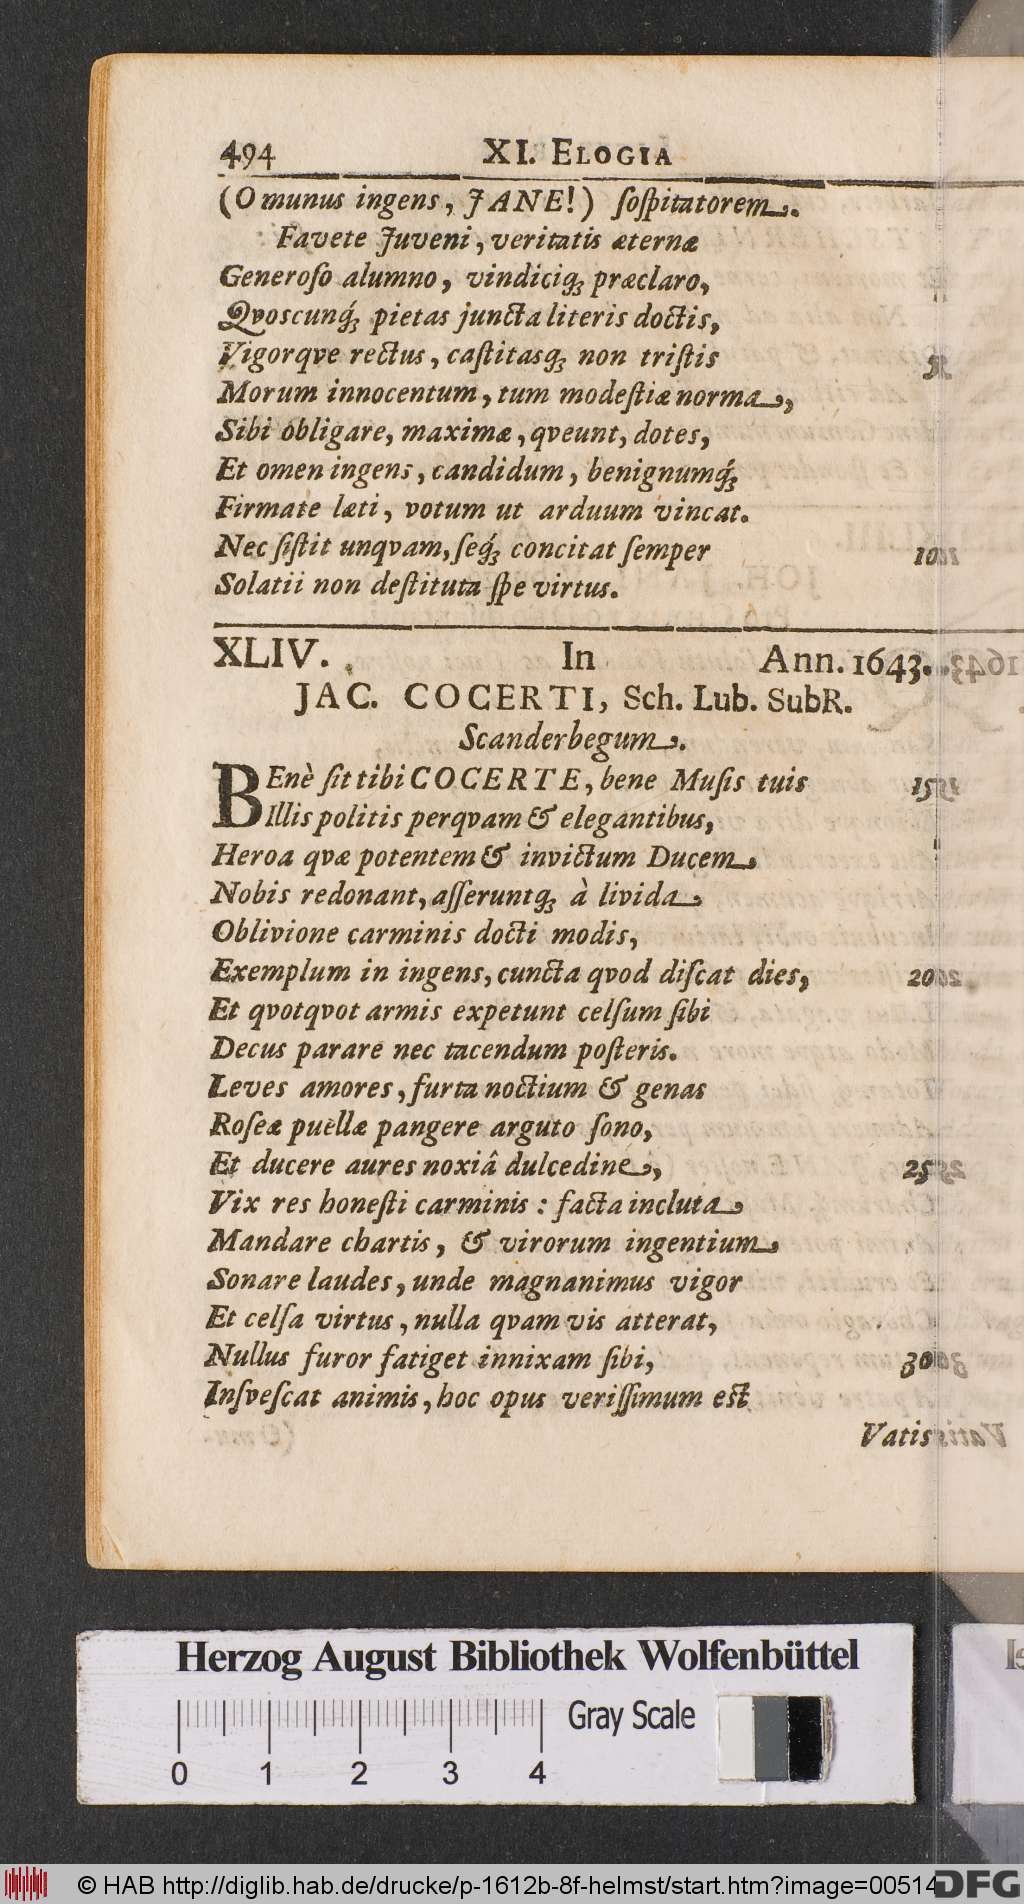 494 XI. ELOGIA
(O munus ingens, JANE!) ſoſpitatorem.
Favete Juveni, veritatis æternæ
Generoſo alumno, vindiciq́; præclaro,
Qvoscunq́; pietas juncta literis doctis,
Vigorqve rectus, caſtitasq́; non triſtis
Morum innocentum, tum modeſtiæ norma,
Sibi obligare, maximæ, qveunt, dotes,
Et omen ingens, candidum, benignumq́;
Firmate læti, votum ut arduum vincat.
Nec ſiſtit unqvam, ſeq́; concitat ſemper 10
Solatii non deſtituta ſpe virtus.
XLIV. In Ann. 1643.
JAC. COCERTI, Sch. Lub. SubR.
Scanderbegum.
BEnè ſit tibi COCERTE, bene Muſis tuis 15
Illis politis perqvam & elegantibus,
Heroa qvæ potentem & invictum Ducem
Nobis redonant, aſſeruntq́; à livida
Oblivione carminis docti modis,
Exemplum in ingens, cuncta qvod diſcat dies, 20
Et qvotqvot armis expetunt celſum ſibi
Decus parare nec tacendum poſteris.
Leves amores, furta noctium & genas
Roſeæ puellæ pangere arguto ſono,
Et ducere aures noxiâ dulcedine, 25
Vix res honeſti carminis : facta incluta
Mandare chartis, & virorum ingentium
Sonare laudes, unde magnanimus vigor
Et celſa virtus, nulla qvam vis atterat,
Nullus furor fatiget innixam ſibi, 30
Inſveſcat animis, hoc opus veriſſimum eſt
Vatis
Herzog August Bibliothek Wolfenbüttel
Gray Scale
0 1 2 3 4
© HAB http://diglib.hab.de/drucke/p-1612b-8f-helmst/start.htm?image=00514
DFG